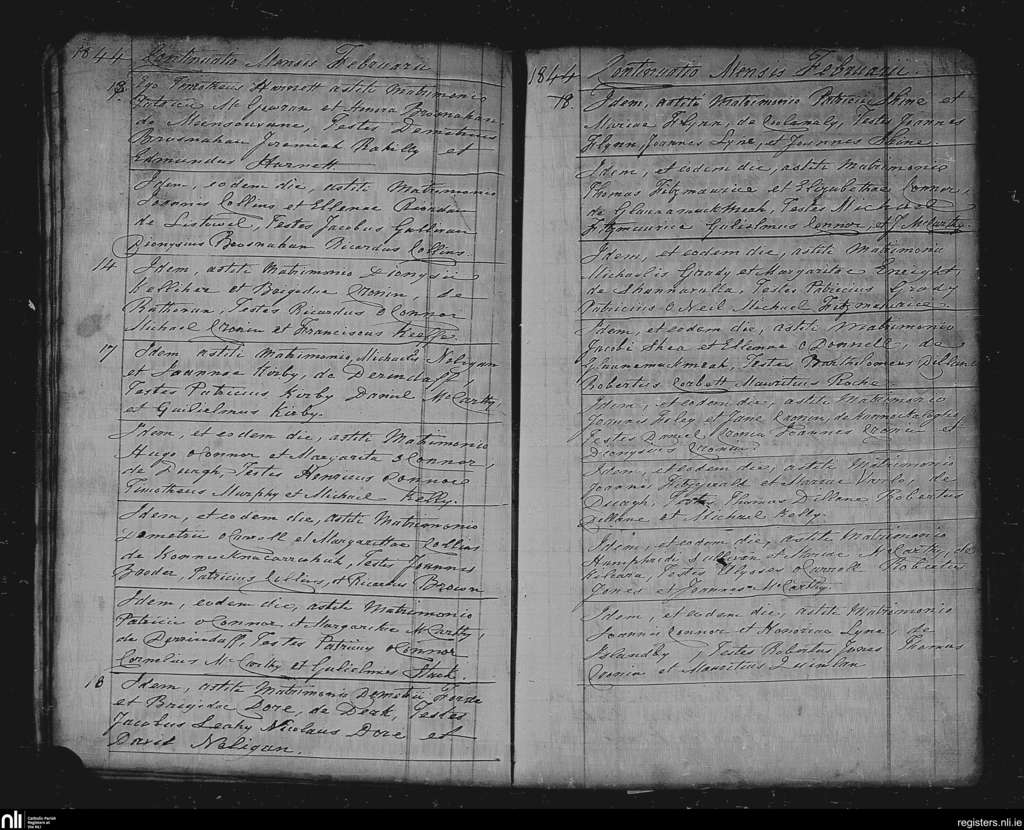 1844 Continuatio Mensis Februarii
13. Ego Timotheus Harnett astiti Matrimonio
Patricii Mc Gowran et Honora Brosnahan
de Meensouvane, Testes Demetrius
Brosnahan Jeremiah Rahilly et
Edmundus Harnett
Idem, eodem die, astiti Matrimonio
Joannis Collins et Ellenae Riordan
de Listowel, Testes Jacobus Gullivan
Dionysius Brosnahan Ricardus Collins.
14 Idem, astiti Matrimonio Dionysii
Kelliher et Brigidae Cronin, de
Rathenan, Testes Ricardus O Connor
Michael Cronin et Franciscus Keeffe.
17 Idem astiti Matrimonio, Michaelis Neligan
et Joannae Kirby, de Derrindaff,
Testes Patricius Kirby Daniel Mc Carthy
et Guilielmus Kirby.
Idem, et eodem die, astiti Matrimonio
Hugo O Connor et Margarita O Connor,
de Duagh, Testes Henricus Connor
Timotheus Murphy et Michael Kelly.
Idem, et eodem die, astiti Matrimonio
Demetrii Carroll et Margaritae Collins
de Testes Joannes
Broder, Patricius Collins, et Ricardus Brown
Idem, eodem die, astiti Matrimonio
Patricii O Connor, et Margaritae Mc Carthy,
de Derrindaff, Testes Patricius O Connor
Cornelius Mc Carthy et Gulielmus Stack.
18 Idem, astiti Matrimonio Demetrii Forde
et Brigidae Dore, de Derk, Testes
Jacobus Leahy Nicolaus Dore et
David Neligan.
1844 Continuatio Mensis Februarii.
18. Idem, astiti Matrimonio Patricii Shine et
Mariae Flynn, de Testes Joannes
Flynn, Joannes Lyne, et Joannes Shine.
Idem, et eodem die, astiti Matrimonio
Thomas Fitzmaurice et Elizabethae Connor,
de Testes Michael
Fitzmaurice Gulielmus Connor, et J McCarthy.
Idem, et eodem die, astiti Matrimonio
Michaelis Grady et Margaritae Enright,
de Testes Patricius Grady
Patricius O Neil Michael Fitzmaurice
Idem, et eodem die, astiti Matrimonio
Jacobi Shea et Ellenae O Donnell, de
Testes Bartholomeus Dillane
Robertus Corbett Mauritius Roche
Idem, et eodem die, astiti Matrimonio
Foley et Jane Cronin, de
Testes Daniel Cronin Joannes Cronin et
Dionysius Cronin.
Idem, et eodem die, astiti Matrimonio
Joannis Fitzgerald et Mariae de
Duagh, Testes Thomas Dillane Robertus
Dillane et Michael Kelly.
Idem, et eodem die, astiti Matrimonio
Sullivan et Mariae Mc Carthy, de
Testes Ulysses O Carroll Robertus
Jones et Joannes Mc Carthy.
Idem, et eodem die, astiti Matrimonio
Joannis Connor et Honorae Lyne, de
Testes Robertus Jones Thomas
Cronin et Mauritius Quinlan
nli Catholic Parish
Registers at
the NLI
registers.nli.ie